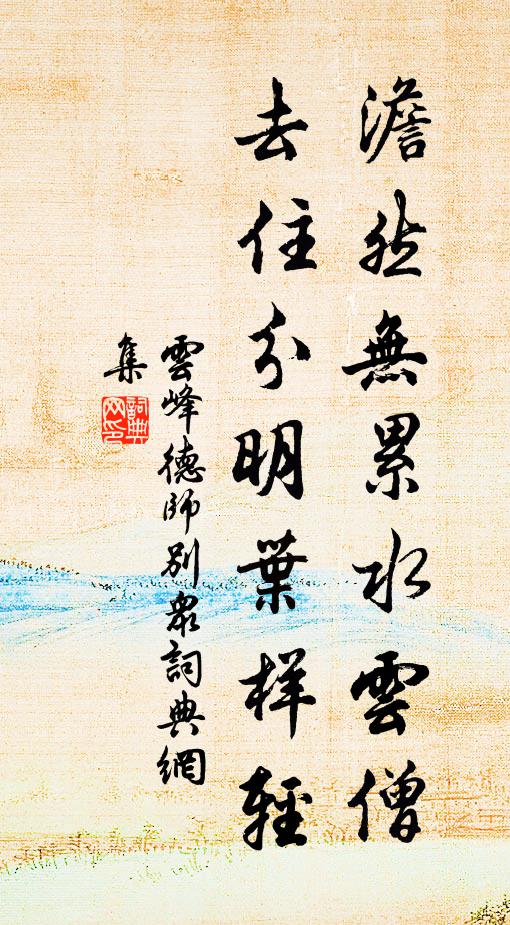 澹然無累水雲僧
去住分明葉樣輕
雲峰德師別眾詞典網
集
詞典
网印